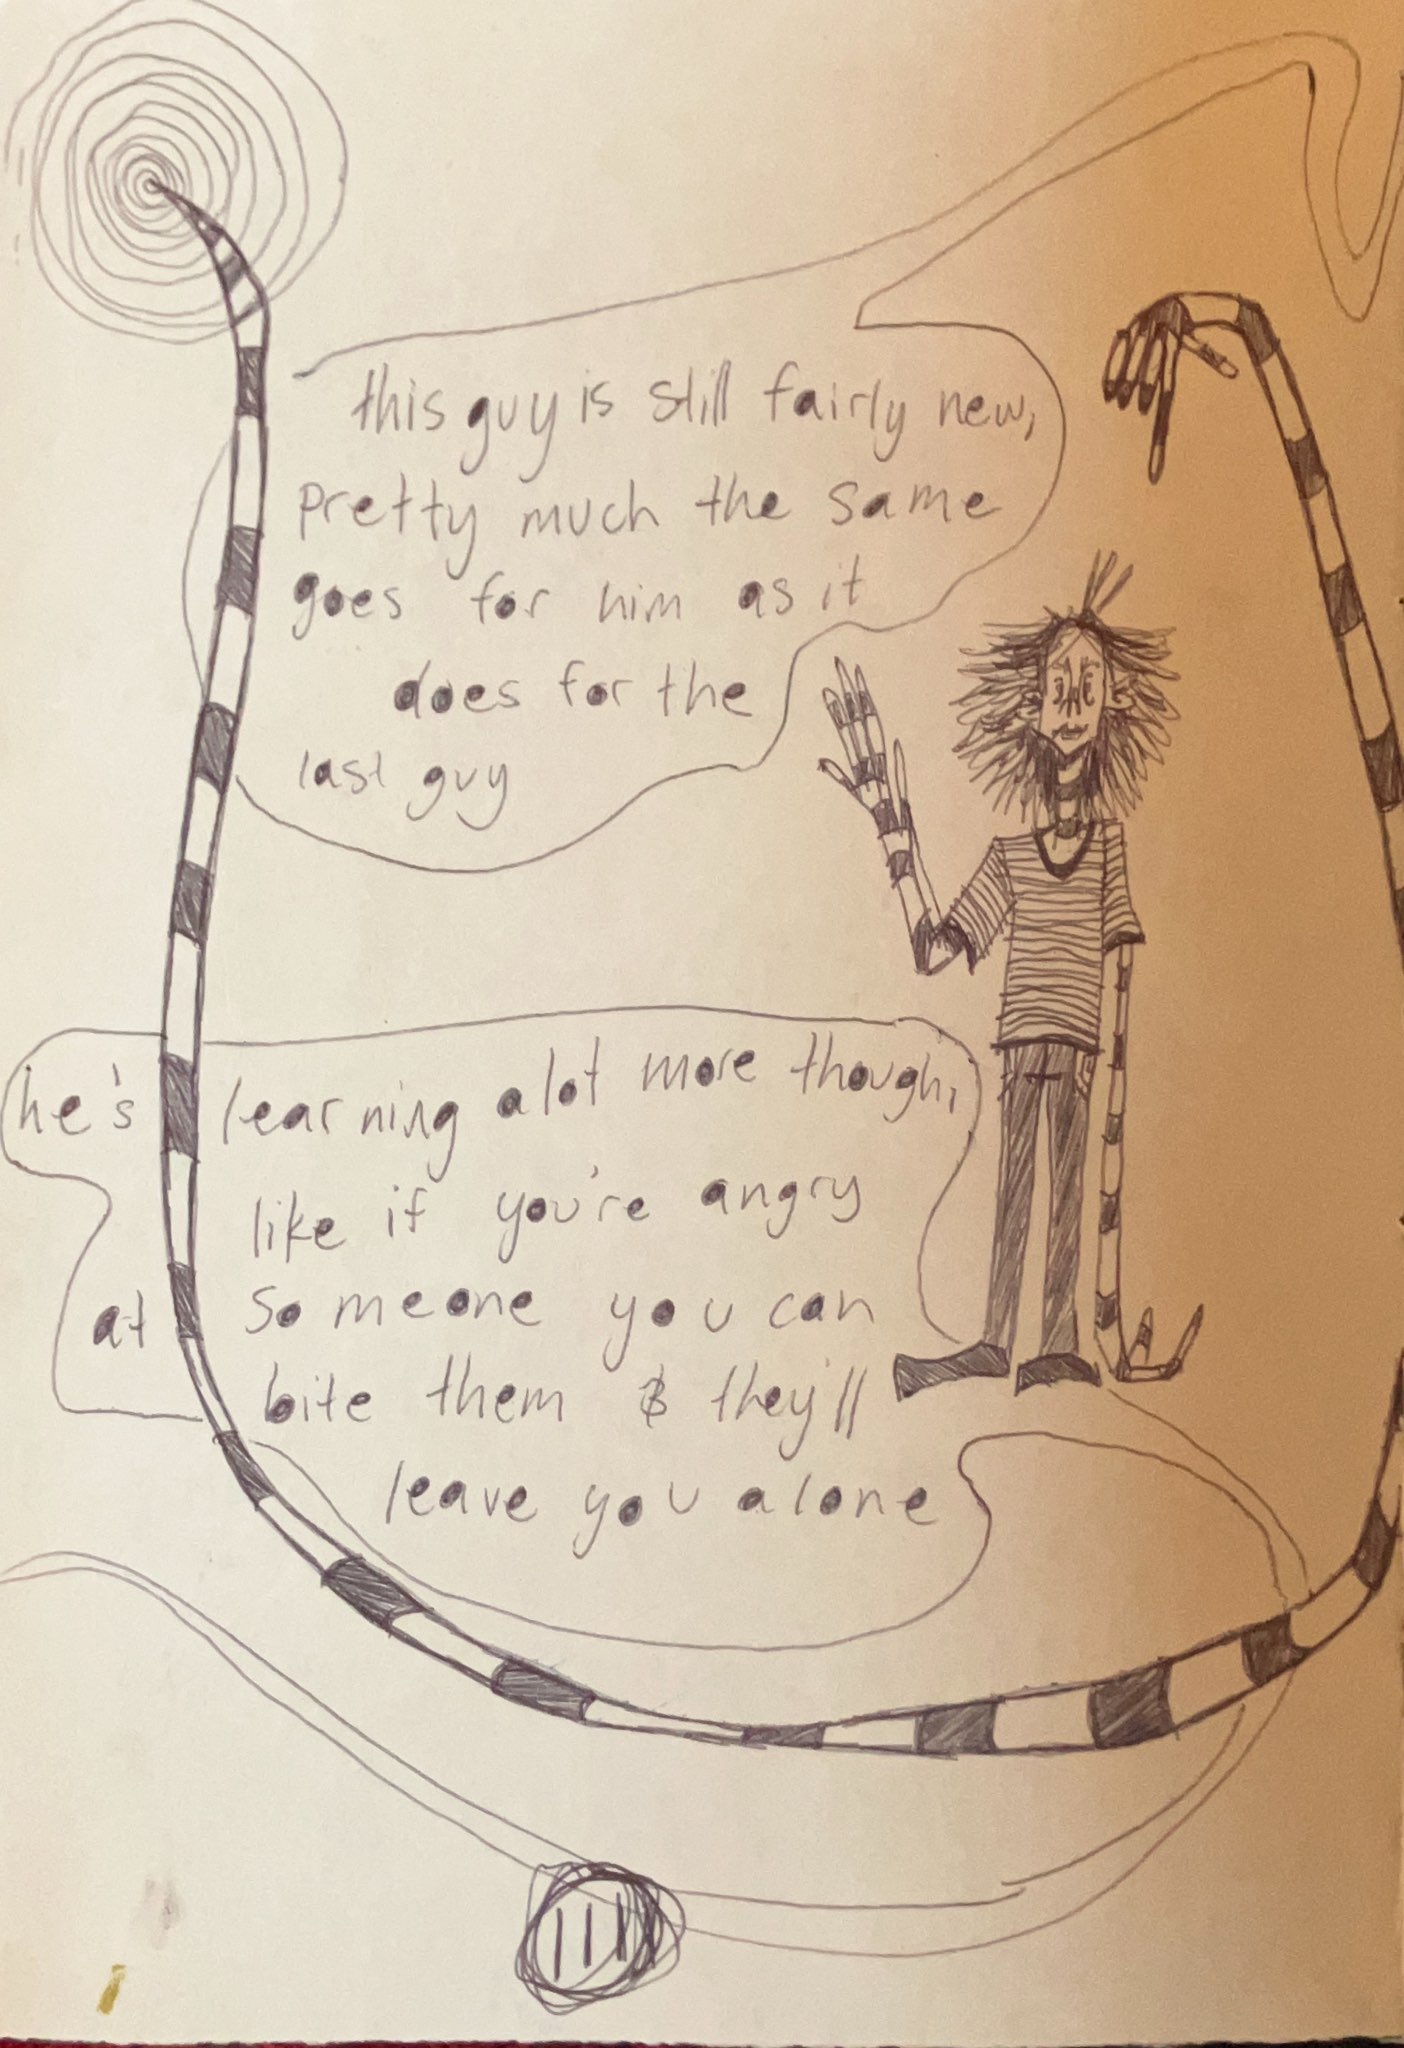 this guy is still fairly new,
pretty much the same
goes for him as it
does for the
last guy
he's learning alot more though,
like if you're angry
at someone you can
bite them & they'll
leave you alone
III